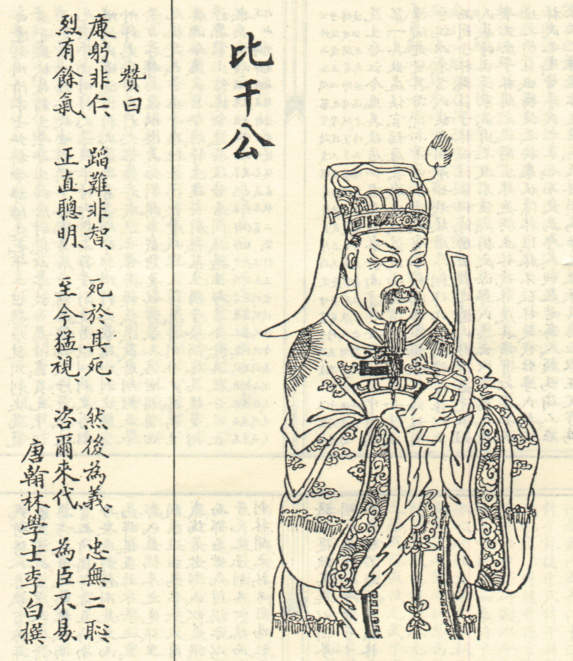 比干公
贊曰
康躬非仁、蹈難非智、死於其死、然後為義、忠無二聁
烈有餘氣、正直聰明、至今猛視、咨爾來代、為臣不易、
唐翰林學士李白撰